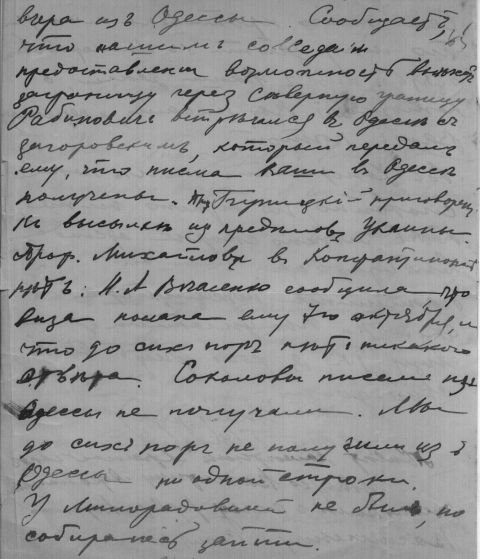 вчера изъ Одессы. Сообщаетъ,
что нашимъ соседямъ
предоставлена возможность выехать
заграницу через Северную границу
Рабиновичъ встречался в Одессе съ
Загоровскимъ, который передалъ
ему, что письма Ваши в Одессе
получены. приговоренъ
къ высылке из пределовъ Украины.
Проф. Михайлова в Константинополе
нетъ: Н. А сообщила что
виза послана ему 7го октября, и
что до сихъ поръ нетъ никакого
ответа. Соколовы писем изъ
Одессы не получали. Мы
до сихъ поръ не получили изъ
Одессы ни одной строки.
У Милорадовичей не были, но
собираемся зайти.